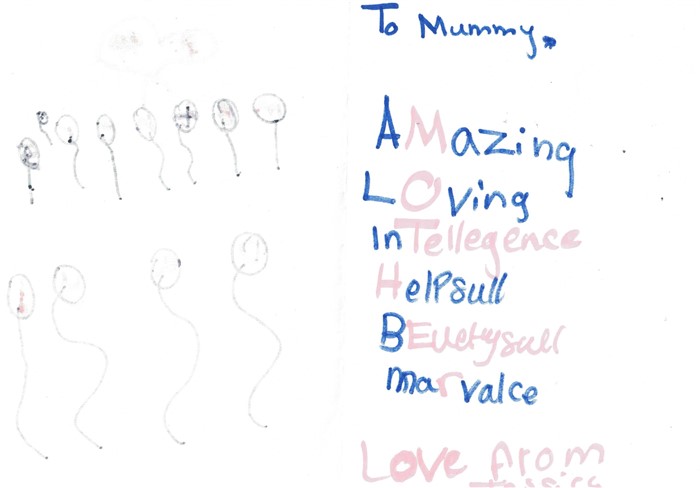 To Mummy.
AMazing
LOving
InTellegence
Helpsull
BEuetysull
marvalce
Love from